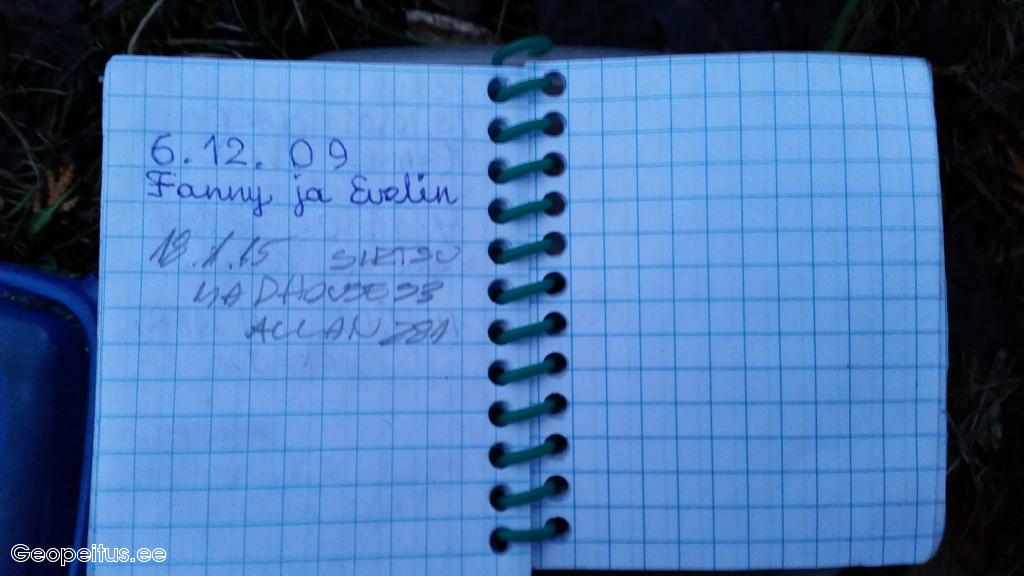 6.12.09
Fanny ja Evelin
18.1.15
MADHOUSE93
ALLAN281
Geopeitus.ee